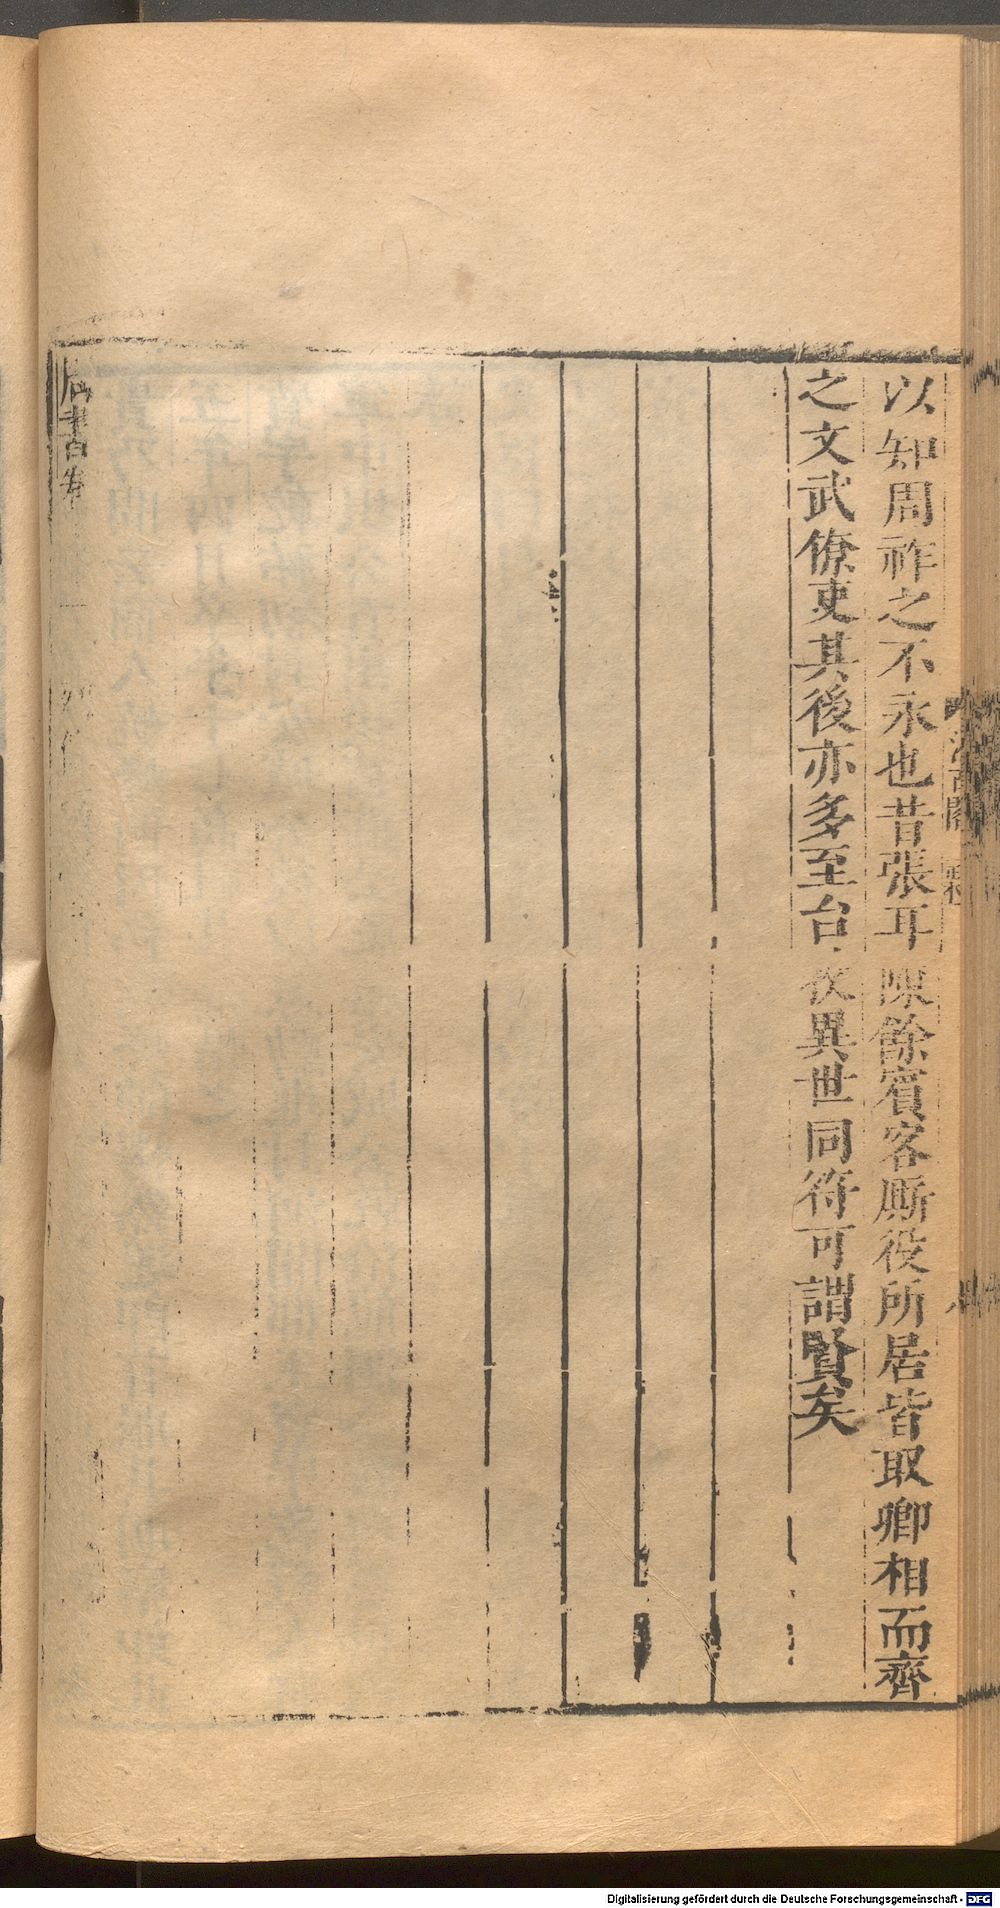 以知周祚之不永也昔張耳陳餘賓客厮役所居皆取卿相而齊
之文武僚吏其後亦多至台牧異世同符可謂賢矣
周書卷
Digitalisierung gefördert durch die Deutsche Forschungsgemeinschaft - DFG